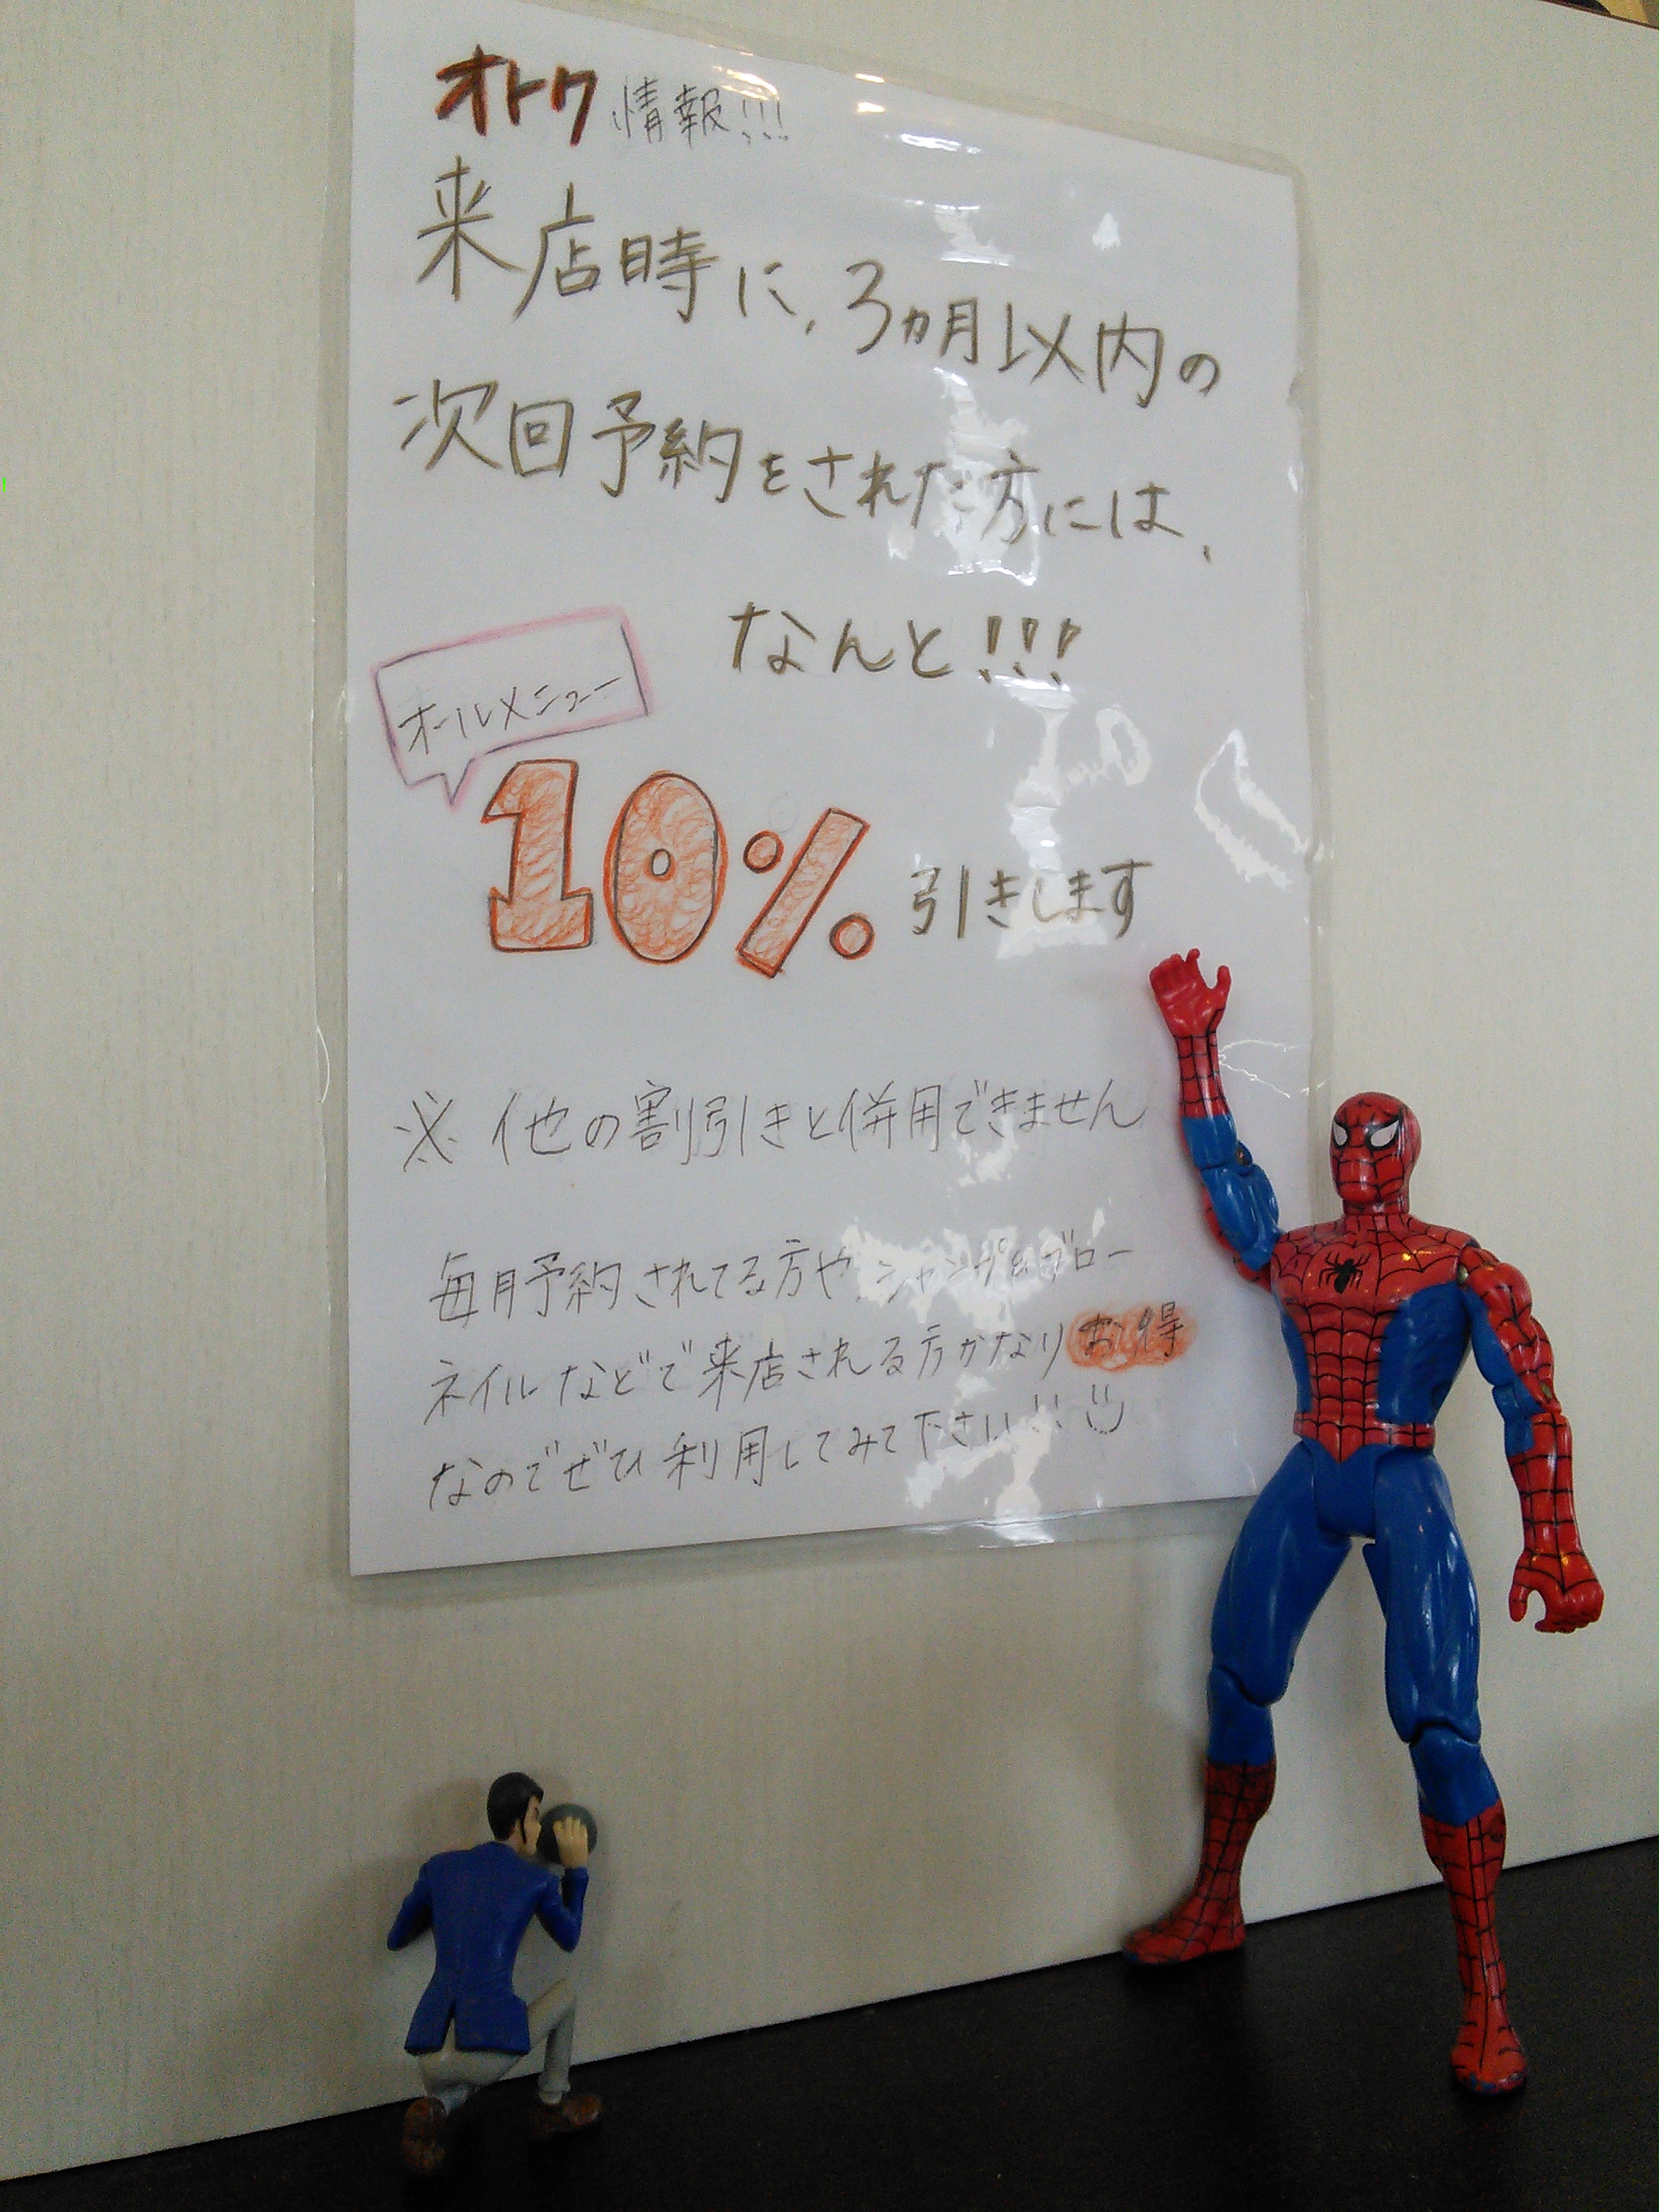 オトク情報!!!
来店時に、3ヵ月以内の
次回予約をされた方には、
なんと!!!
オールメニュー
10%引きします
※他の割引きと併用できません
毎月予約されてる方や、シャンプー&ブロー
ネイルなどで来店される方かなりお得
なのでぜひ利用してみて下さい!!